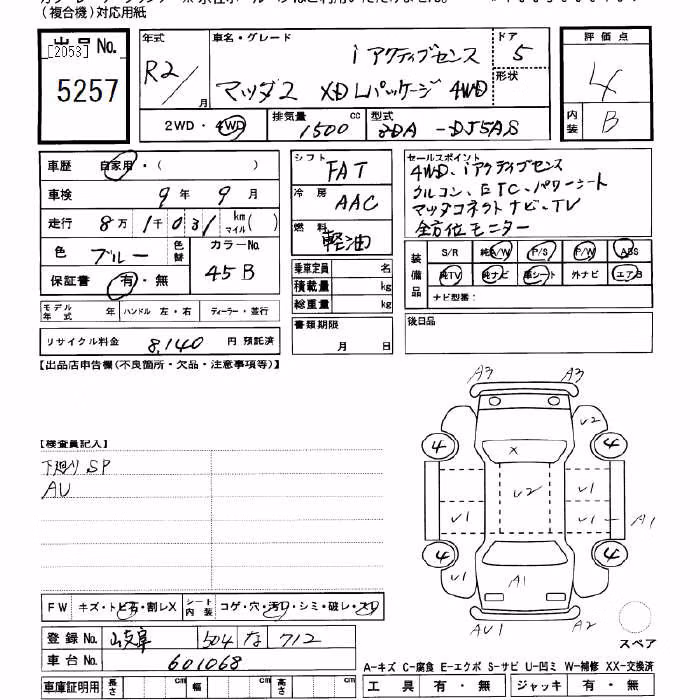 (複合機)対応用紙
出品 No.
[2053]
5257
年式
R2/
月
車名・グレード
i アクティブセンス
マツダ2 XD Lパッケージ 4WD
ドア
5
形状
2WD・4WD
排気量
1500 cc
型式
3DA -DJ5AS
評価点
4
内装
B
車歴 自家用・( )
車検 9年 9月
走行 8万 1千 031 km マイル( )
色 ブルー 色替
カラーNo.
45B
保証書 有・無
モデル年式 年 ハンドル 左・右 ディーラー・並行
リサイクル料金 8,140 円 預託済
シフト
FAT
冷房
AAC
燃料
軽油
乗車定員 名
積載量 kg
総重量 kg
書類期限
月 日
セールスポイント
4WD、iアクティブセンス
クルコン、ETC、パワーシート
マツダコネクトナビ、TV
全方位モニター
装備品
S/R 純A/W P/S P/W ABS
純TV 純ナビ 革シート 外ナビ エアB
ナビ型番:
後日品
【出品店申告欄(不良箇所・欠品・注意事項等)】
【検査員記入】
下廻り SP
AU
A3 A3
U2
4 4
X
U1 U2 U1
U1 U1 A1
4 4
A1
AU1 A2
スペア
FW キズ・トビ石・割レX シート内装 コゲ・穴・汚レ・シミ・破レ・スレ
登録 No. 岐阜 504 な 712
車台 No. 601068
車庫証明用 長さ cm 幅 cm 高さ cm
A-キズ C-腐食 E-エクボ S-サビ U-凹ミ W-補修 XX-交換済
工具 有・無 ジャッキ 有・無